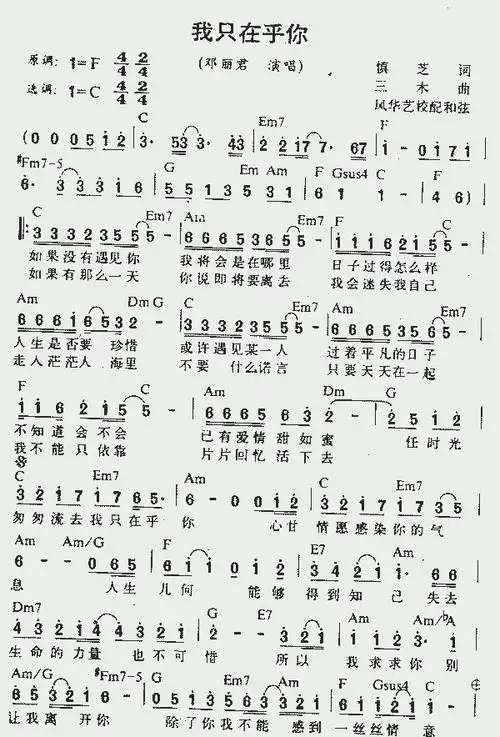 我只在乎你
(邓丽君 演唱)
原调: 1=F 4/4 2/4
选调: 1=C 4/4 2/4
慎芝 词
三木 曲
风华艺校配和弦
C Em7 F
(0 0 0 5 1 2 3· 53 3· 43 2 2 1 7 7· 67 1 - 0 1 7 1
#Fm7-5 G Em Am F Gsus4 C F
6· 3 3 3 1 6 5 5 1 3 5 5 3 1 6 1 1 - 4 6)
C Em7 Am Em7 F C
3 3 3 2 3 5 5 5 6 6 6 5 3 6 5 5 1 1 1 6 2 1 5 5
如果没有遇见你 我将会是在哪里 日子过得怎么样
如果有那么一天 你说即将要离去 我会迷失我自己
Am Dm G C Em7 Am Em7
6 6 6 1 6 5 3 2 3 3 3 2 3 5 5 5 6 6 6 5 3 6 5 5
人生是否要 珍惜 或许遇见某一人 过着平凡的日子
走入茫茫人 海里 不要 什么诺言 只要天天在一起
F C Am Dm G
1 1 6 2 1 5 5 6 6 6 5 6 3 2 2 - 2 5 1 2
不知道会不会 已有爱情甜如蜜 任时光
我不能只依靠 片片回忆活下去
C Em7 Am C Em7
3 2 1 7 1 7 6 5· 6 - 0 0 1 2 3 2 1 7 1 7 3 5
匆匆流去我只在乎 你 心甘 情愿感染你的气
Am Am/G F E7 Am
6 - 0 6 5 1 2 - 1 2 3 4 2 1 1· 6 6
息 人生 几何 能够 得到知 己 失去
Dm7 G E7 Am Am/bA
4 3 2 1 4 4 3 2 1 2 - - 3 2 1 1 1 2 3· 1
生命的力量 也不可惜 所以 我求求你 别
Am/G #Fm7-5 G Em7 Am F Gsus4 C
6 5 3 2 1 1 6 0 5 1 3 5 6 3 5 2 1 1 6 2 1 1 -
让我离 开你 除了你我不能 感到 一丝丝情 意